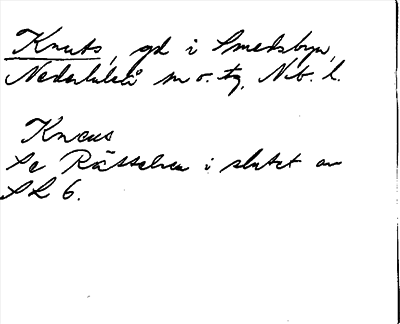 Knuts, gd i Smedsbyn,
Nederluleå sn o. tg, Nb. l.
Knœus
Se Rättelser i slutet av
SL 6.